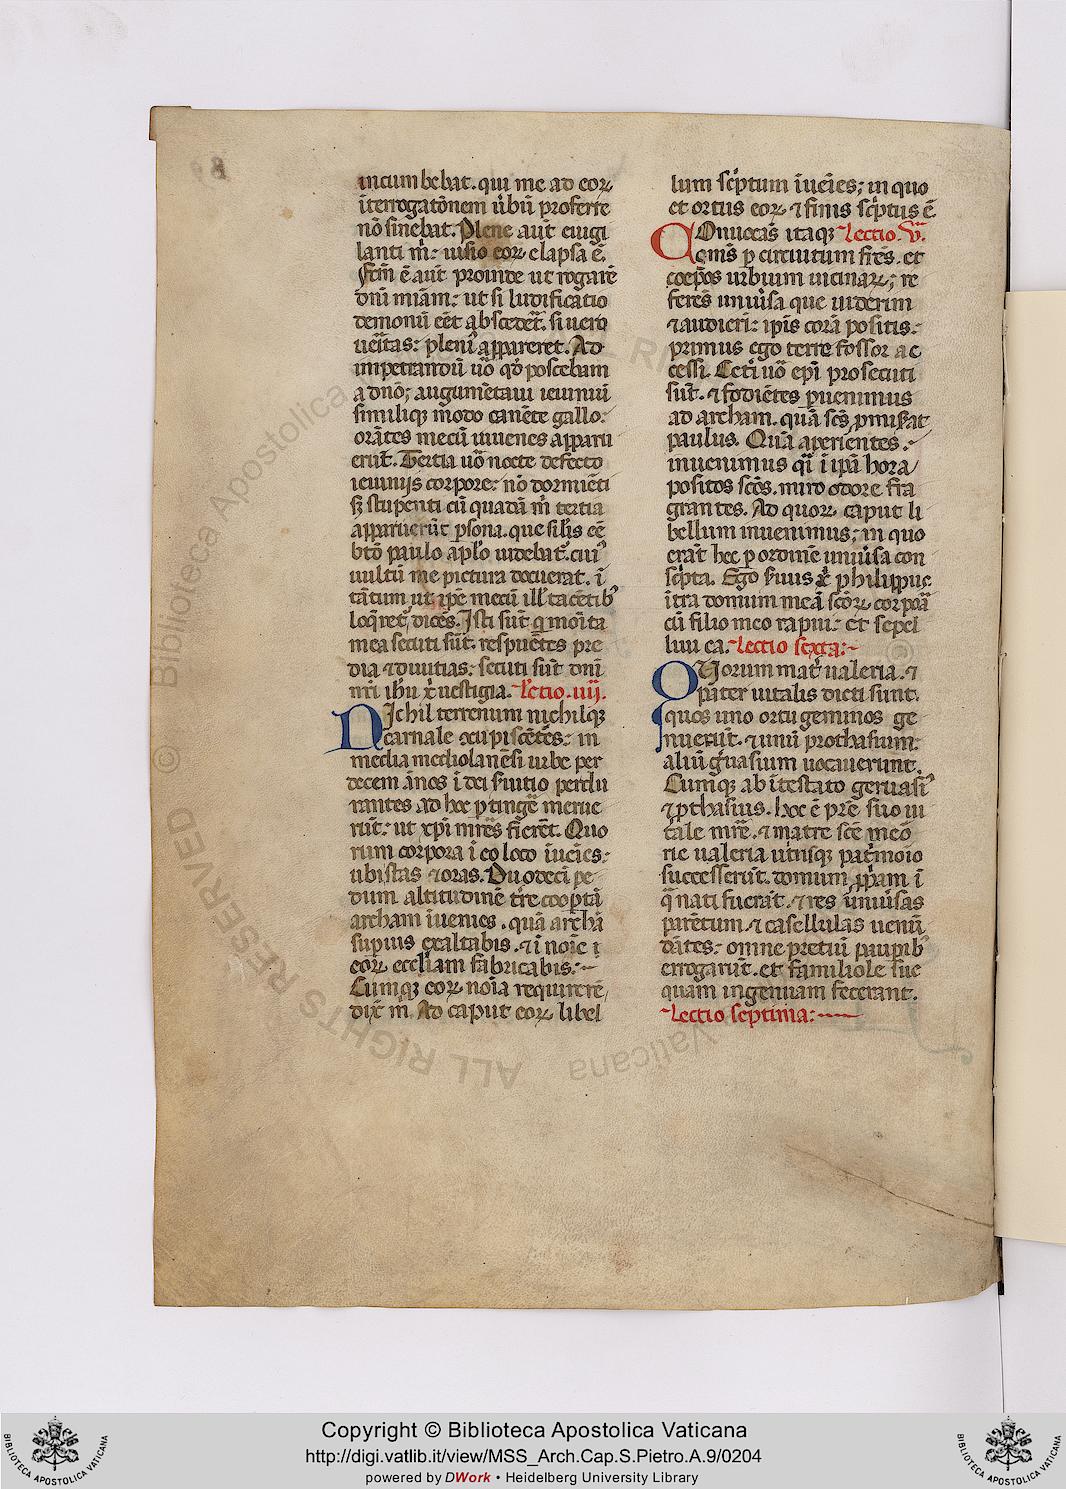 incumbebat. qui me ad eoꝝ
īterrogatōnem űbū proferre
nō sinebat. Plene aūt euigi
lanti m̄: uisio eoꝝ elapsa ē.
Fc̄m ē aūt proinde ut rogarē
dn̄i miām: ut si ludificatio
demonū eēt abscedet̄. si uero
uēitas: pleni᾽ appareret. Ad
impetrandū uō qd᾽ poscebam
a dn̄o; augumētaui ieiunin
similiqꝫ modo canēte gallo:
orātes mecū iuuenes apparu
erūt. Tertia uō nocte defecto
ieiunijs corpore: nō dormiēti
sꝫ stupenti cū quadā m̄ tertia
apparuerūt ꝑsona. que sil̄is eē
bt̄o paulo aplo uidebat᾽. cui᾽
uultū me pictura docuerat. ī
tātum ut ip̄e mecū ill᾽ tacētib᾽
loq̄ret᾽ dicēs. Isti sūt q moīta
mea secuti sūt. respuētes pre
dia ⁊ diuitias: secuti sūt dn̄i
nr̄i ih̄u x̄ uestigia. Lectio. iiij.
NIchil terrenum nichilqꝫ
carnale ꝯcupiscētes: in
media mediolanēsi urbe per
decem ānos ī dei s̄uitio perdu
rantes ad hoc ꝑtingē merue
rūt: ut xp̄i mr̄es fierēt. Quo
rum corpora ī eo loco īueīes:
ubi stas ⁊ oras. Duodeci pe
dum altitudinē tr̄e cooꝑtā
archam īuenies. quā archā
supius exaltabis. ⁊ ī noīe i
eoꝝ eccl̄iam fabricabis:~
Cumqꝫ eoꝝ noīa requirerē,
dix̄ m̄. Ad caput eoꝝ libel
lum sc̄ptum īueīes; in quo
et ortus eoꝝ ⁊ finis sc̄ptus ē.
COnuocas᾽ itaqꝫ Lectio. v̄.
oms᾽ ꝑ circuitum frēs. et
coep̄os urbium uicinaꝝ; re
ferēs uniūsa que uiderim
⁊ audieri: ip̄is corā positis:
primus ego terre fossor ac
cessi. Cet̄i uō ep̄i prosecuti
sūt. ⁊ fodiētes ꝑuenimus
ad archam. quā sc̄s ꝓmiẜat
paulus. Quā aperientes.
inuenimus q̄i ī ip̄a hora
positos sc̄os. miro odore fra
grantes. Ad quoꝝ caput li
bellum inuenimus; in quo
erāt hec ꝑ ordinē uniūsa con
sc̄pta. Ego s̄uus x̄ philippuc
ītra domum meā sc̄oꝝ corpoā
cū filio meo rapui: et sepel
liui ea. Lectio sexta:~
QUorum mat᾽ ualeria. ⁊
pater uitalis dicti sunt.
quos uno ortu geminos ge
nuerūt. ⁊ unū prothasium:
aliū ḡuasium uocauerunt.
Cumqꝫ ab ītestato geruasi᾽
⁊ ꝓthasius. hoc ē pr̄e suo ui
tale mr̄e. ⁊ matre sc̄e meō
rie ualeria ut̄usqꝫ pat̄moīo
successerūt. domum ꝓpam ī
q̄ nati fuerāt. ⁊ res uniūsas
parētum. ⁊ casellulas uenū
dātes: omne pretiū paupib᾽
errogarūt. et familiole sue
quam ingeniam fecerant.
Lectio septima:~
Copyright © Biblioteca Apostolica Vaticana
http://digi.vatlib.it/view/MSS_Arch.Cap.S.Pietro.A.9/0204
powered by DWork • Heidelberg University Library